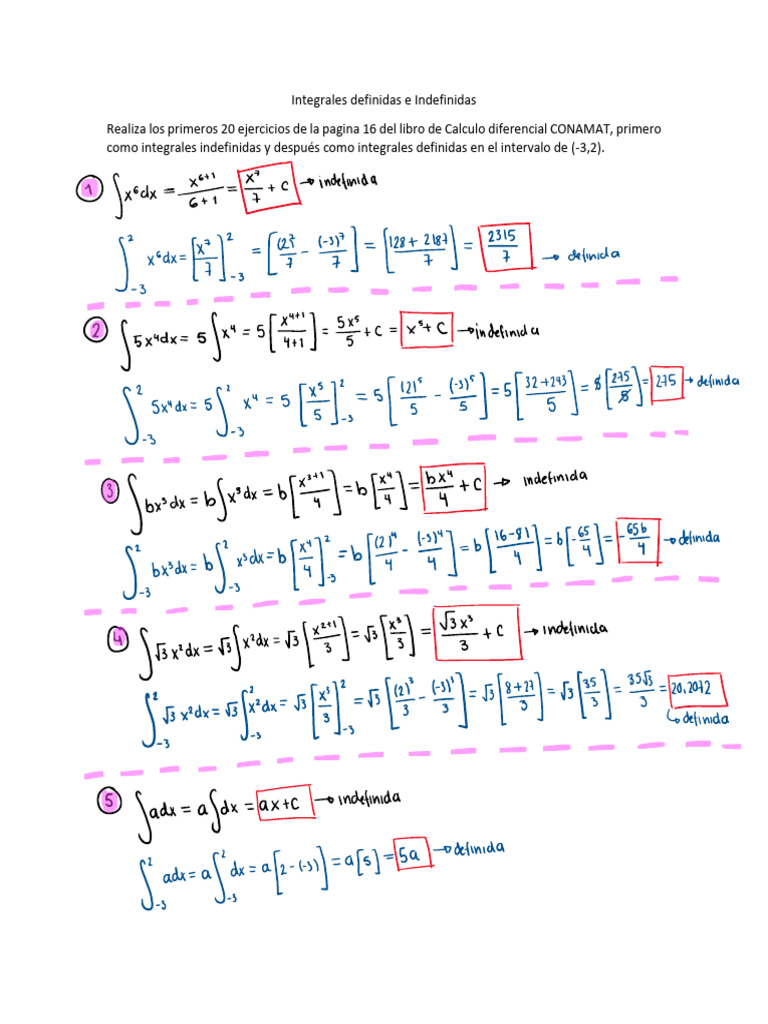 Integrales definidas e Indefinidas
Realiza los primeros 20 ejercicios de la pagina 16 del libro de Calculo diferencial CONAMAT, primero
como integrales indefinidas y después como integrales definidas en el intervalo de (-3,2).
1 ∫x⁶dx = x⁶⁺¹/6+1 = x⁷/7 + c → indefinida
∫₋₃² x⁶dx = [x⁷/7]₋₃² = [(2)⁷/7 − (−3)⁷/7] = [128 + 2187/7] = 2315/7 → definida
2 ∫5x⁴dx = 5∫x⁴ = 5[x⁴⁺¹/4+1] = 5x⁵/5 + c = x⁵ + C → indefinida
∫₋₃² 5x⁴dx = 5∫₋₃² x⁴ = 5[x⁵/5]₋₃² = 5[(2)⁵/5 − (−3)⁵/5] = 5[32 + 243/5] = 5[275/5] = 275 → definida
3 ∫bx³dx = b∫x³dx = b[x³⁺¹/4] = b[x⁴/4] = bx⁴/4 + C → indefinida
∫₋₃² bx³dx = b∫₋₃² x³dx = b[x⁴/4]₋₃² = b[(2)⁴/4 − (−3)⁴/4] = b[16−81/4] = b[−65/4] = −65b/4 → definida
4 ∫√3 x²dx = √3∫x²dx = √3[x²⁺¹/3] = √3[x³/3] = √3x³/3 + C → indefinida
∫₋₃² √3 x²dx = √3∫₋₃² x²dx = √3[x³/3]₋₃² = √3[(2)³/3 − (−3)³/3] = √3[8+27/3] = √3[35/3] = 35√3/3 = 20,2072
→ definida
5 ∫adx = a∫dx = ax+C → indefinida
∫₋₃² adx = a∫₋₃² dx = a[2−(−3)] = a[5] = 5a → definida